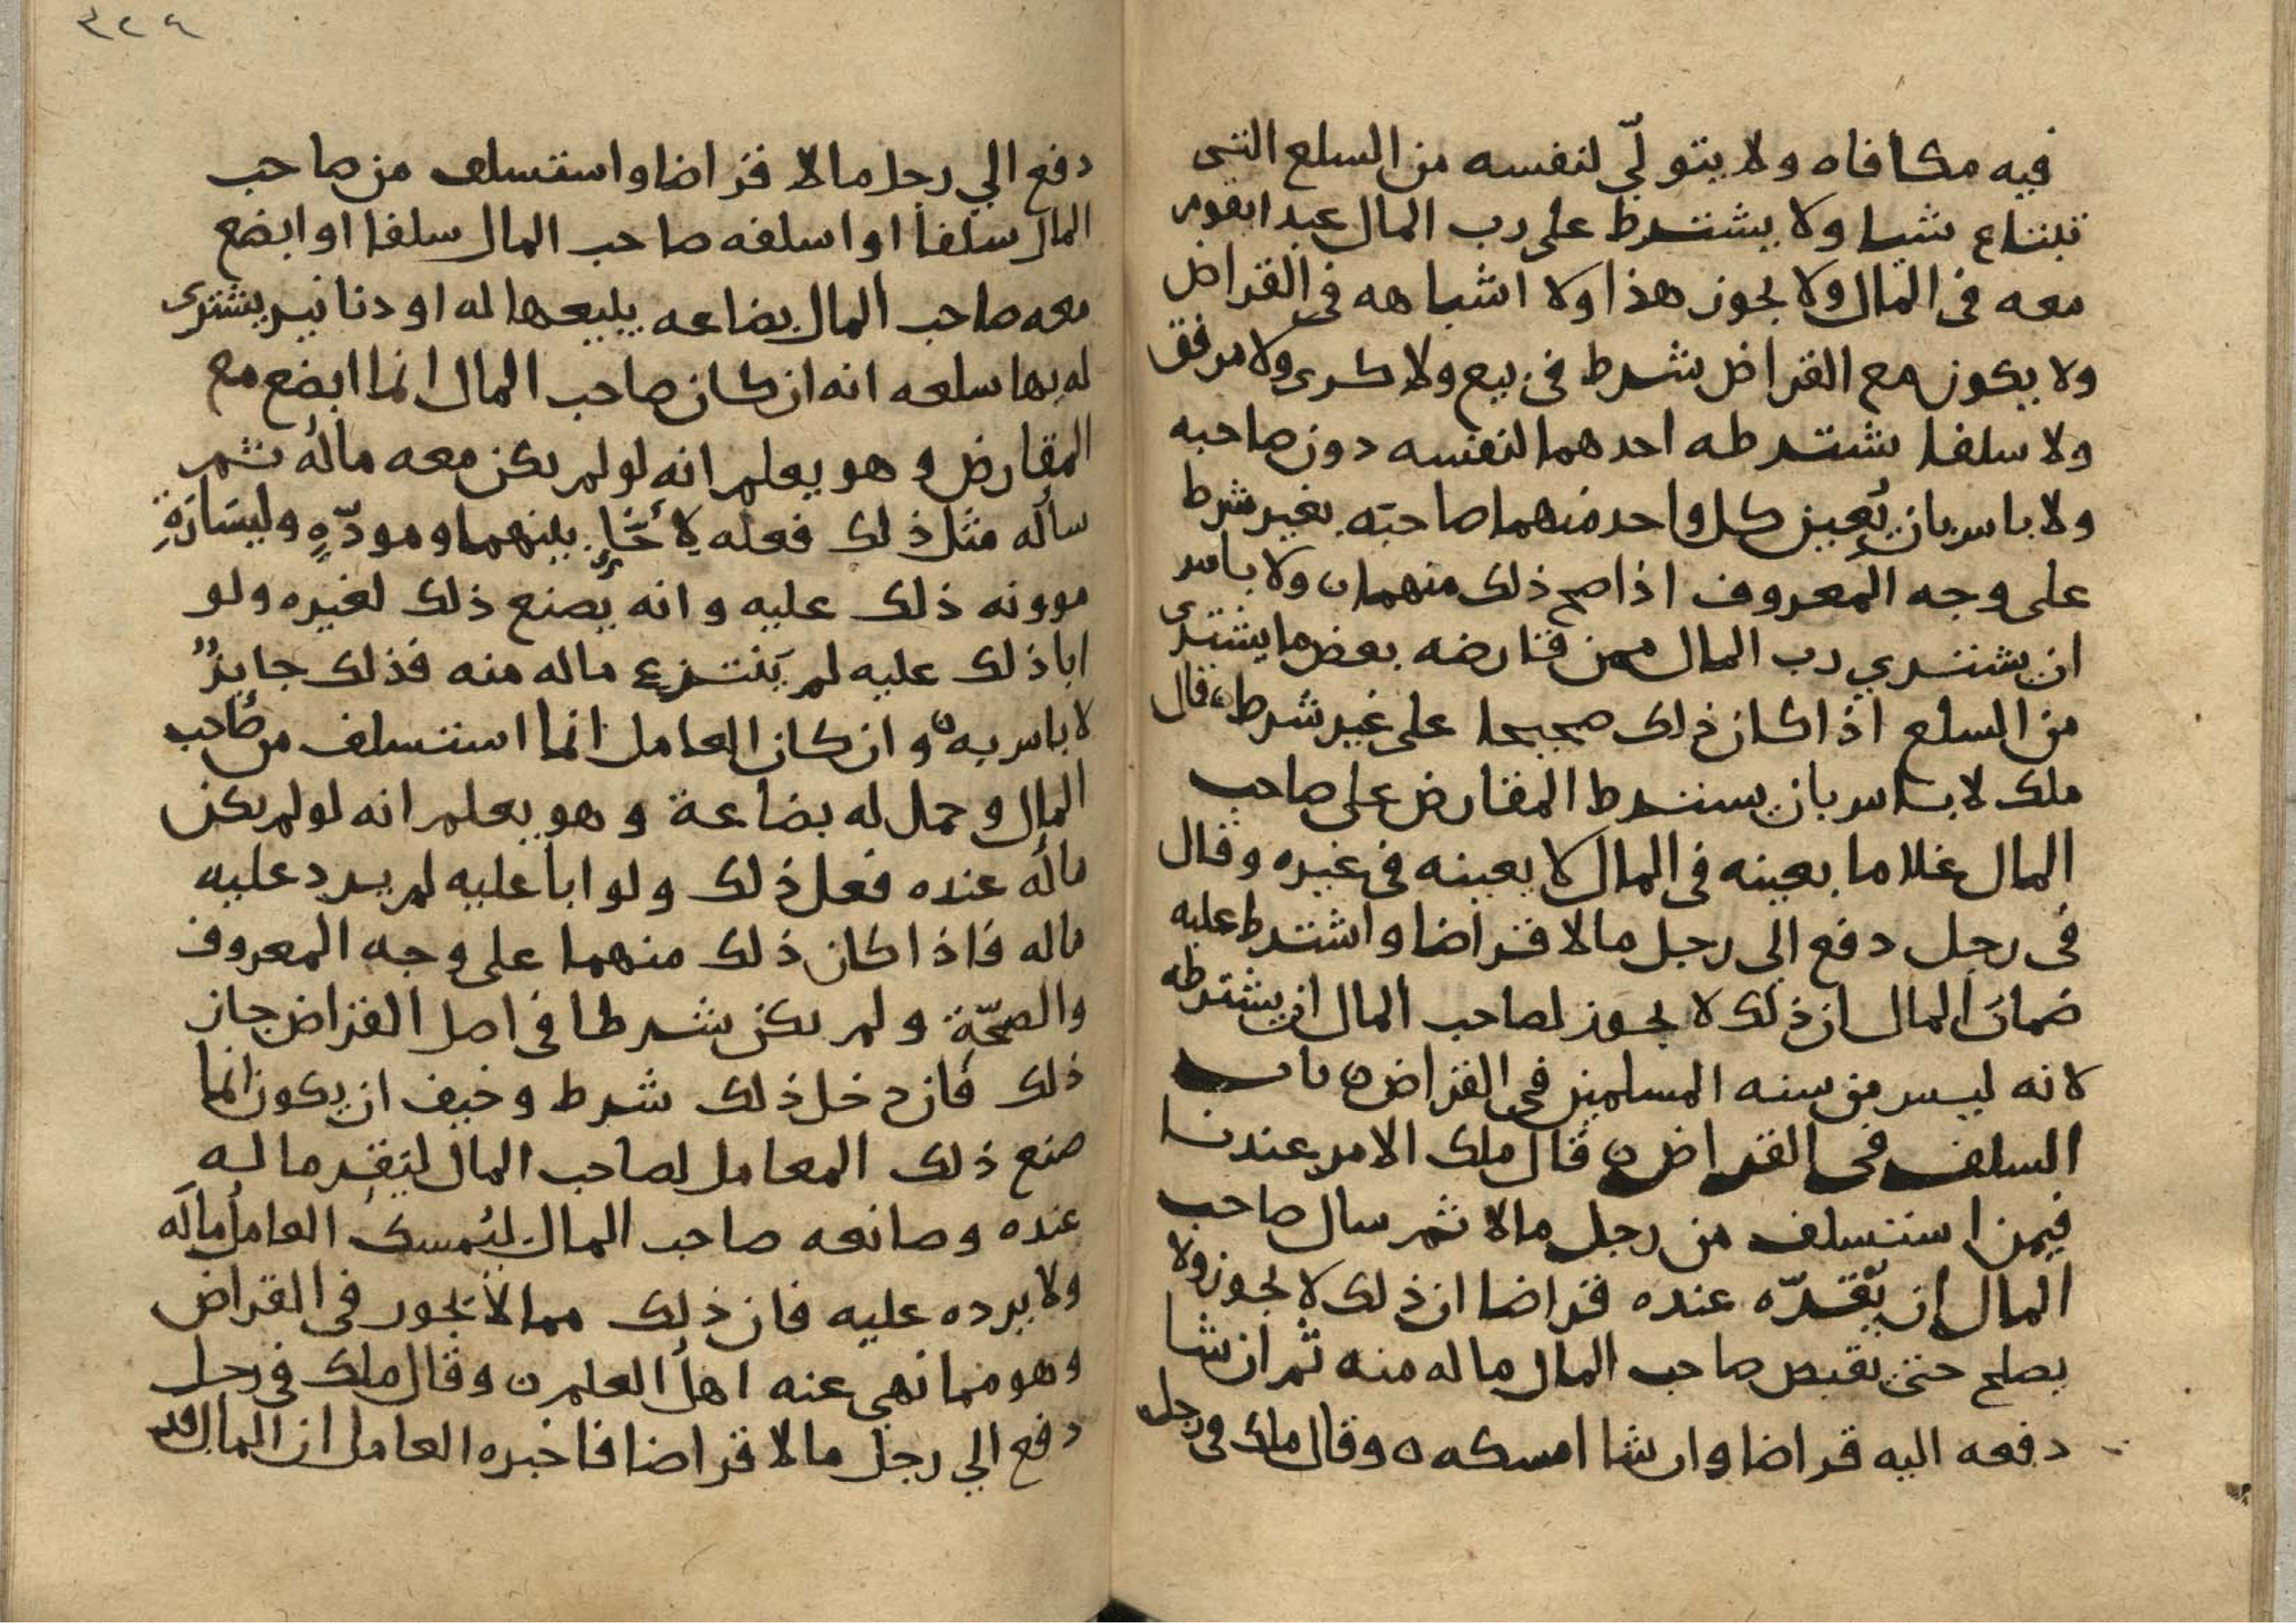 فيه مكافاه ولا يتولّي لنفسه من السلع التى
تبتاع شيا ولا يشترط على رب المال عبدا يقوم
معه فى المال ولا يجوز هذا ولا اشباهه فى القراض
ولا يكون مع القراض شرط فى بيع ولا كرى ولا مرفق
ولا سلفا يشترطه احدهما لنفسه دون صاحبه
ولا باس بان يُعين كل واحد منهما صاحبَه بغير شرط
على وجه المعروف اذا صح ذلك منهما ن ولا باس
ان يشتري رب المال ممن قارضه بعض ما يشترى
من السلع اذا كان ذلك صحيحا على غير شرط ه قال
ملك لا باس بان يشترط المقارض على صاحب
المال غلاما يعينه فى المال لا يعينه فى غيره وقال
فى رجل دفع الى رجل مالا قراضا واشترط عليه
ضمانَ المال ان ذلك لا يجوز لصاحب المال ان يشترطه
لانه ليس من سنه المسلمين فى القراض ن باب
السلف فى القراض ن قال ملك الامر عندنا
فيمن استسلف من رجل مالا ثم سال صاحب
المال ان يُقرّه عنده قراضا ان ذلك لا يجوز ولا
يصلح حتى يقبض صاحب المال ماله منه ثم ان شا
دفعه اليه قراضا وان شا امسكه ه وقال ملك فى رجل
٣٢٤
دفع الي رجل مالا قراضا واستسلف من صاحب
المال سلفا او اسلفه صاحب المال سلفا او ابضع
معه صاحب المال بضاعه يبيعها له او دنانير يشترى
له بها سلعه انه ان كان صاحب المال انما ابضع مع
المقارض وهو يعلم انه لو لم يكن معه مالُه ثم
سأله مثل ذلك فعله لإخّاٍ بينهما ومودّهٍ وليسَارَةِ
موونه ذلك عليه وانه يصنع ذلك لغيره ولو
ابا ذلك عليه لم يَنتزع ماله منه فذلك جايزٌ
لا باس به ن وان كان العامل انما استسلف من صاحب
المال وحمل له بضاعة وهو يعلم انه لو لم يكن
ماله عنده فعل ذلك ولو ابا عليه لم يردد عليه
ماله فاذا كان ذلك منهما على وجه المعروف
والصحّةِ ولم يكن شرطا فى اصل القراض جاز
ذلك فان دخل ذلك شرط وخيف ان يكون انما
صنع ذلك المعامل لصاحب المال ليَقِر ماله
عنده وصانعه صاحب المال ليُمسكَ العاملُ مالَه
ولا يرده عليه فان ذلك مما لا يجوز فى القراض
وهو مما نهي عنه اهل العلم ن وقال ملك فى رجل
دفع الي رجل مالا قراضا فاخبره العامل ان المال قد